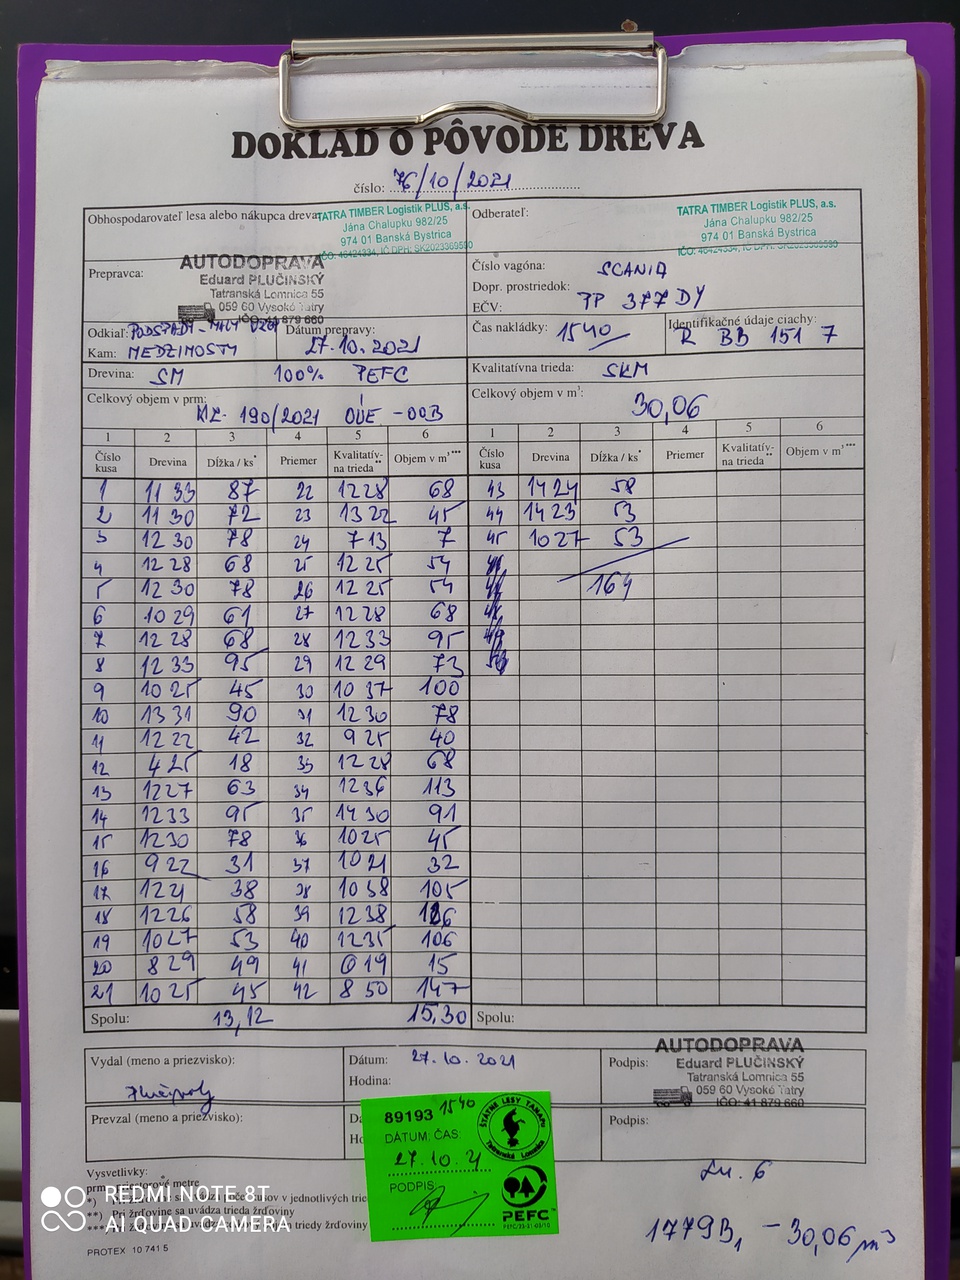 DOKLAD O PÔVODE DREVA
číslo: 76/10/2021
Obhospodarovateľ lesa alebo nákupca dreva:
TATRA TIMBER Logistik PLUS, a.s.
Jána Chalupku 982/25
974 01 Banská Bystrica
IČO: 46424334, IČ DPH: SK2023369590
Odberateľ:
TATRA TIMBER Logistik PLUS, a.s.
Jána Chalupku 982/25
974 01 Banská Bystrica
IČO: 46424334, IČ DPH: SK2023369590
Prepravca:
AUTODOPRAVA
Eduard PLUČINSKÝ
Tatranská Lomnica 55
059 60 Vysoké Tatry
IČO: 41 879 660
Číslo vagóna:
Dopr. prostriedok: SCANIA
EČV: PP 377 DY
Odkiaľ: PODSPÁDY - MALÝ
Kam: MEDZIMOSTY
Dátum prepravy:
27.10.2021
Čas nakládky: 15 40
Identifikačné údaje ciachy:
R BB 151 7
Drevina: SM 100% PEFC
Kvalitatívna trieda: SKM
Celkový objem v prm:
190/2021 - 00B
Celkový objem v m³:
30,06
1 2 3 4 5 6 1 2 3 4 5 6
Číslo kusa Drevina Dĺžka / ks* Priemer Kvalitatív- na trieda** Objem v m³*** Číslo kusa Drevina Dĺžka / ks* Priemer Kvalitatív- na trieda** Objem v m³***
1 11 33 87 22 12 28 68 43 14 24 58
2 11 30 72 23 13 22 45 44 14 23 53
3 12 30 78 24 7 13 7 45 10 27 53
4 12 28 68 25 12 25 54
5 12 30 78 26 12 25 54 164
6 10 29 61 27 12 28 68
7 12 28 68 28 12 33 95
8 12 33 95 29 12 29 73
9 10 25 45 30 10 37 100
10 13 31 90 31 12 30 78
11 12 22 42 32 9 25 40
12 4 25 18 33 12 28 68
13 12 27 63 34 12 36 113
14 12 33 95 35 14 30 91
15 12 30 78 36 10 25 45
16 9 22 31 37 10 21 32
17 12 21 38 38 10 38 105
18 12 26 58 39 12 38
19 10 27 53 40 12 35 106
20 8 29 49 41 6 19 15
21 10 25 45 42 8 50 147
Spolu: 13,12 15,30 Spolu:
Vydal (meno a priezvisko):
Dátum: 27.10.2021
Hodina:
Podpis:
AUTODOPRAVA
Eduard PLUČINSKÝ
Tatranská Lomnica 55
059 60 Vysoké Tatry
IČO: 41 879 660
Prevzal (meno a priezvisko):
Podpis:
89193 15 40
DÁTUM, ČAS:
27.10.21
PODPIS
ŠTÁTNE LESY TANAPu
Tatranská Lomnica
PEFC
Vysvetlivky:
prm - priestorové metre
REDMI NOTE 8T
AI QUAD CAMERA
PROTEX 10 741 5
- 30,06 m³